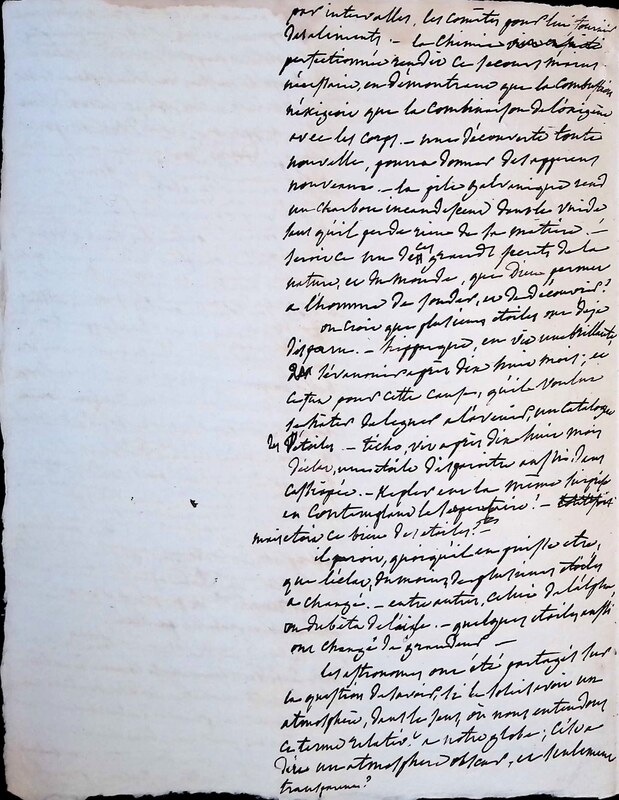 par intervalles, les comètes pour lui fournir
des aliments. — la Chimie
perfectionnée rendre ce secours moins
nécessaire, en démontrant que la combustion
n'exigeoit que la combinaison de l'oxigène
avec les corps. — une découverte toute
nouvelle, pourra donner des apperçus
nouveaux. — la pile galvanique rend
un charbon incandescent dans le vuide
sans qu'il perde rien de sa matière. —
seroit-ce un de ces grands secrets de la
nature, et du monde, que Dieu permet
a l'homme de sonder, et de découvrir?
on croit que plusieurs étoiles ont déja
disparu. — hipparque, en vit une brillante
s'évanouir après dix huit mois; et
ce fut pour cette cause, qu'il voulut
se hater de leguer a l'avenir, un catalogue
des étoiles. — ticho, vit après dix huit mois
d'éclat, une étoile disparoitre aussi dans
Cassiopée. — Kepler eut la même surprise
en contemplant le serpentaire! —
mais etoit ce bien des étoiles? —
il paroit, quoiqu'il en puisse etre,
que l'éclat, du moins de plusieurs étoiles
a changé. — entre autres, celui de l'alpha,
ou du beta de l'aigle. — quelques etoiles aussi
ont changé de grandeur —
les astronomes ont été partagés sur
la question de savoir, si le soleil avoit un
atmosphère, dans le sens où nous entendons
ce terme relatif a notre globe; c'est a
dire un atmosphère obscur, et seulement
transparent?